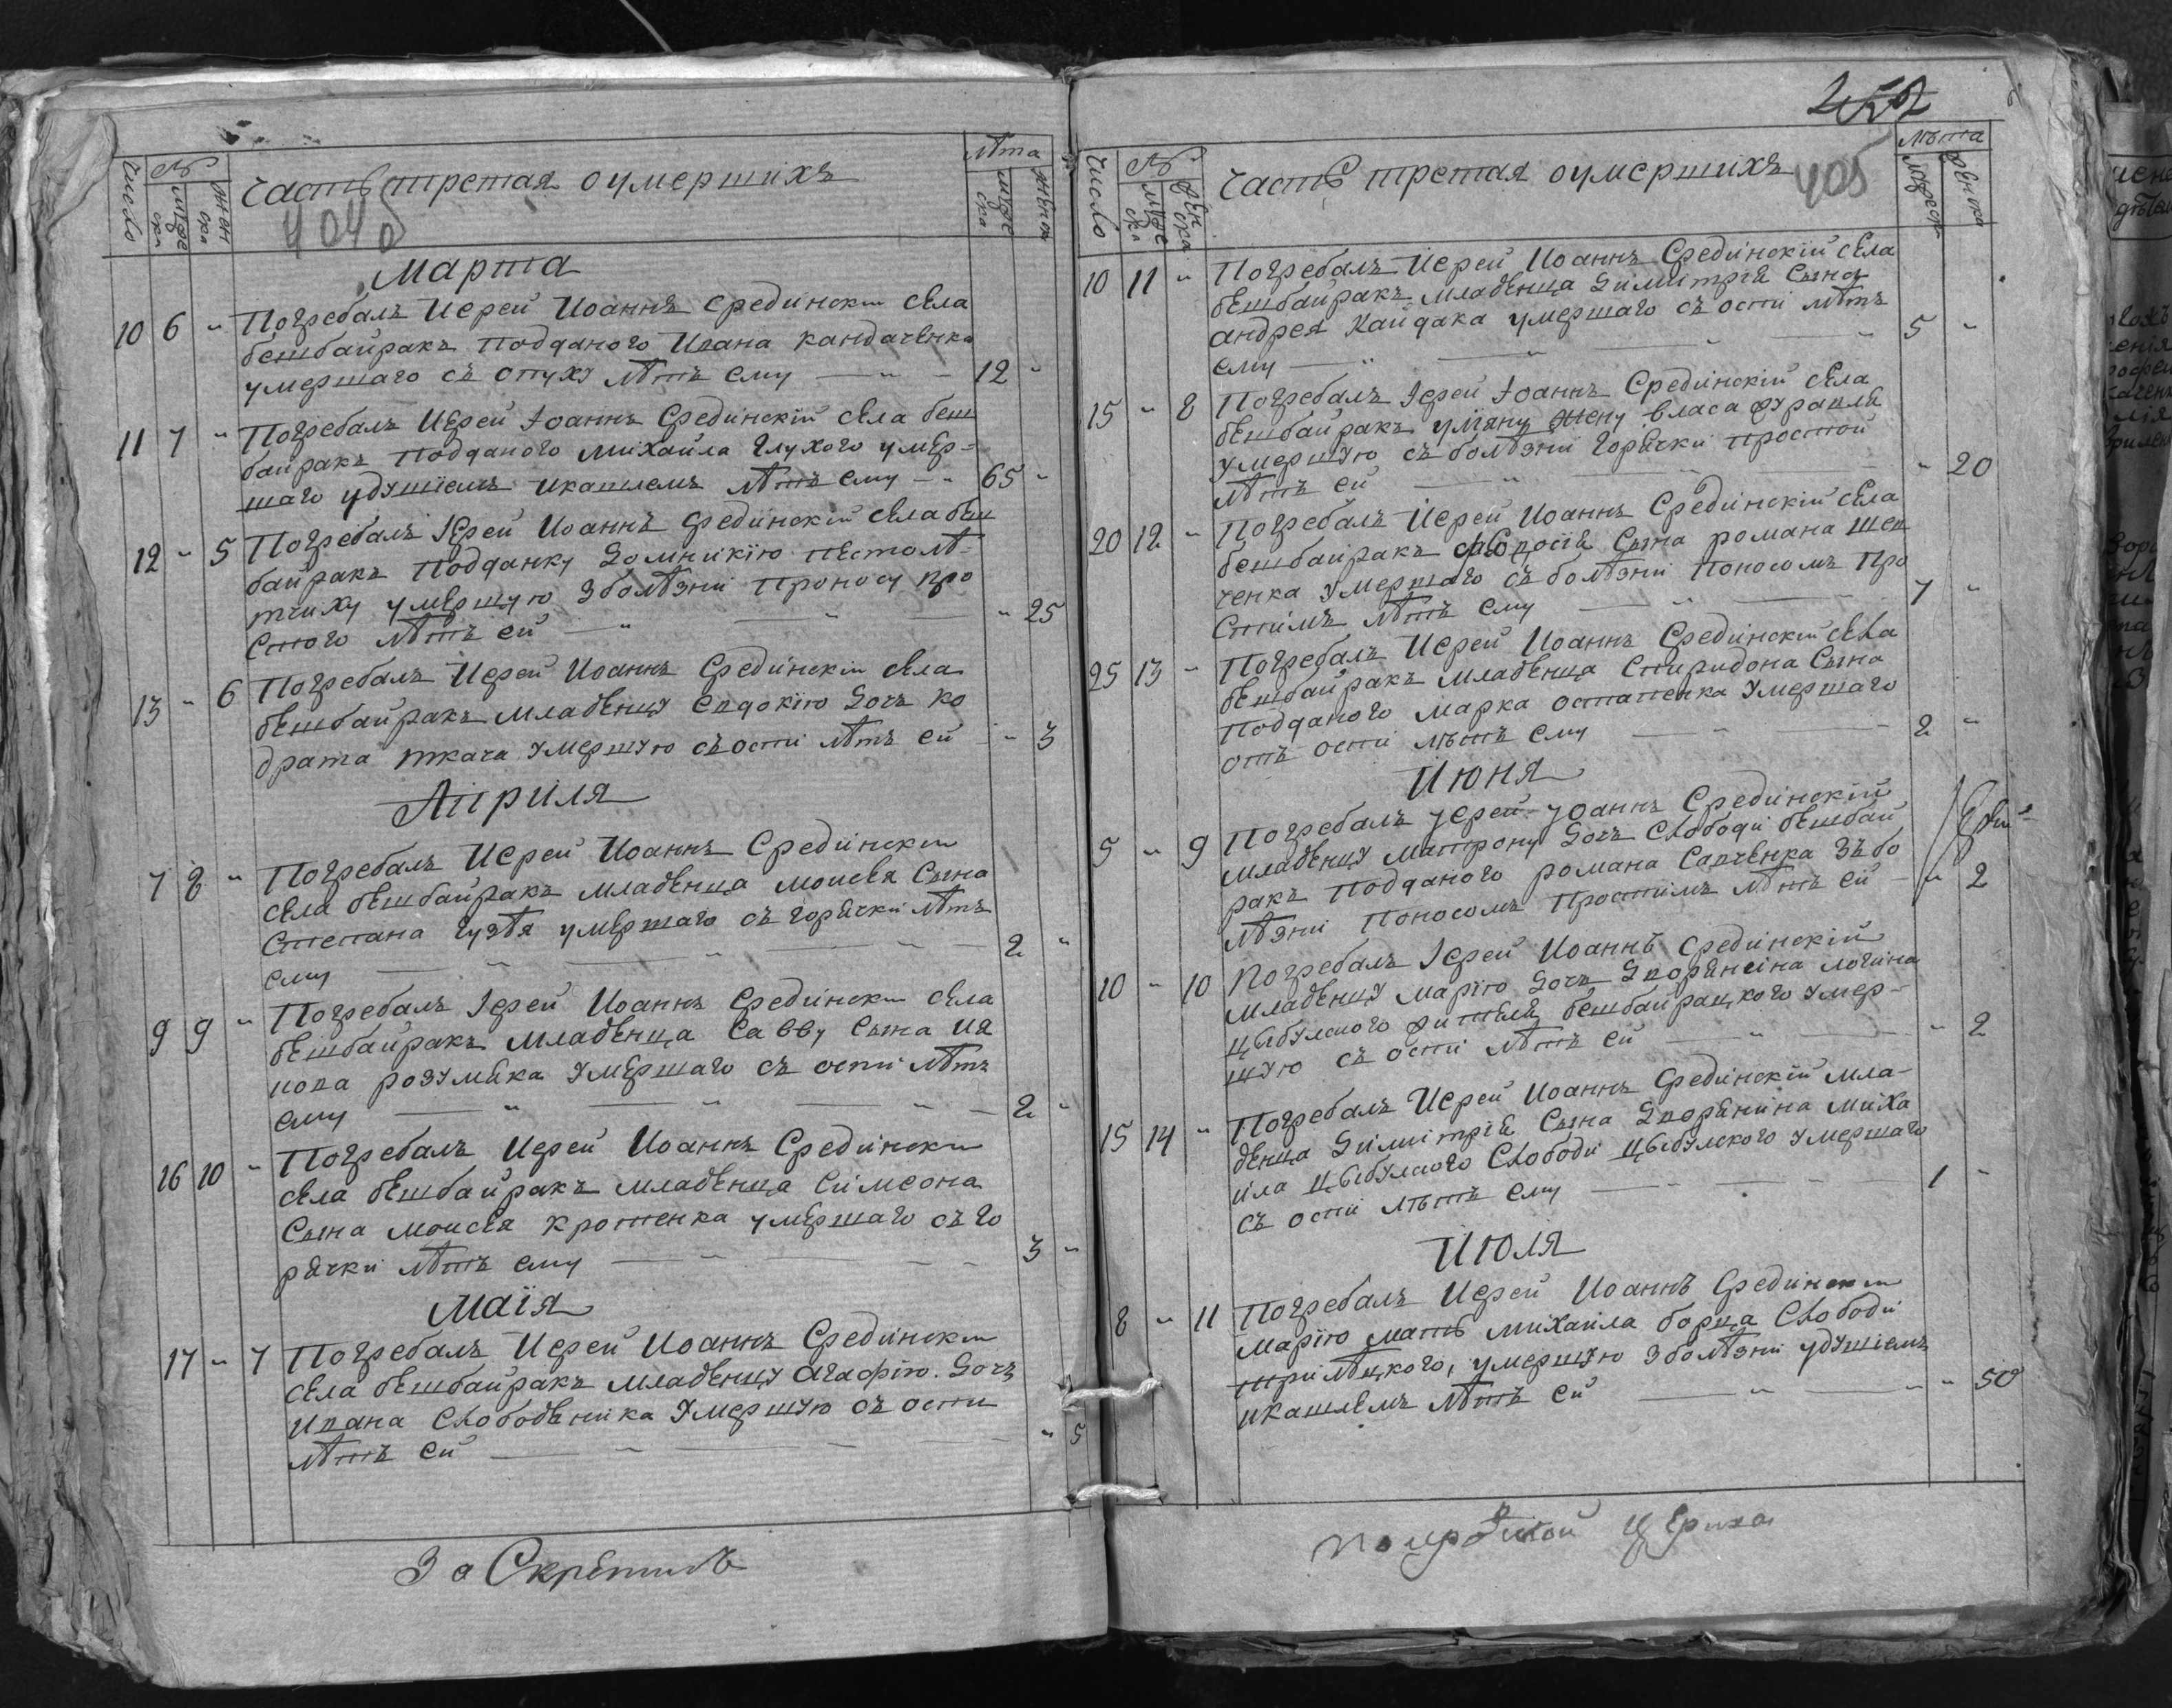 Число № мужеска женска Часть третая оумершихъ Лѣта мужеска женска
404 об
Марта
10 6 " Погребалъ Иерей Иоаннъ Срединскии села
бешбайракъ подданого Ивана кандаченка
умершаго съ опуху лѣтъ ему — " — 12 "
11 7 " Погребалъ Иерей Іоаннъ Срединскій села беш
байракъ подданого михайла глухого умер=
шаго удушіемъ икашлемъ лѣтъ ему — " 65 "
12 " 5 Погребалъ Іерей Иоаннъ Срединскій села беш
байракъ подданку Домникію пестолѣ=
тчиху умершую зболѣзни проносу про
стого лѣтъ ей — " — " — " 25
13 " 6 Погребалъ Иерей Иоаннъ Срединскіи села
бешбайракъ младенцу Евдокію Дочь ко
драта ткача умершую съ оспи лѣтъ ей — " 3
Априля
7 8 " Погребалъ Иерей Иоаннъ Срединскии
села бешбайракъ младенца моисея Сына
Степана гузѣя умершаго съ горячки лѣтъ
ему — " — " — " — 2 "
9 9 " Погребалъ Іерей Иоаннъ Срединскии села
бешбайракъ младенца Савву Сына ия
кова розумѣка умершаго съ оспи лѣтъ
ему — " — " — " — 2 "
16 10 " Погребалъ Иерей Иоаннъ Срединскии
села бешбайракъ младенца Симеона
Сына моисея кротенка умершаго съ го
рячки лѣтъ ему — " — " — 3 "
Маія
17 " 7 Погребалъ Иерей Иоаннъ Срединскии
села бешбайракъ младенцу Агафію Дочь
Ивана Слободеника умершую съ оспи
лѣтъ ей — " — " — " 5
За Скрепилъ
452
Число № мужеска женска Часть третая оумершихъ Лѣта мужеска женска
405
10 11 " Погребалъ Иерей Иоаннъ Срединскій села
бешбайракъ младенца Димитрія Сына
андрея Кайдака умершаго съ оспи лѣтъ
ему — " — " — " — 5 "
15 " 8 Погребалъ Іерей Іоаннъ Срединскій села
бешбайракъ уліяну жену власа журавля
умершую съ болѣзни горячки простой
лѣтъ ей — " — " — " 20
20 12 " Погребалъ Иерей Иоаннъ Срединскій села
бешбайракъ феодосія Сына романа шев
ченка умершаго съ болѣзни поносомъ про
стимъ лѣтъ ему — " — " 7 "
25 13 " Погребалъ Иерей Иоаннъ Срединскій села
бешбайракъ младенца Спиридона Сына
подданого марка остапенка умершаго
отъ оспи лѣтъ ему — " — 2 "
Июня
5 " 9 Погребалъ Іерей Іоаннъ Срединскій
младенцу матрону Дочь Слободи бешбай
ракъ подданого романа Савченка зъ бо
лѣзни поносомъ простимъ лѣтъ ей — " 2
10 " 10 Погребалъ Іерей Иоаннъ Срединскій
младенцу марію Дочь Дворянина логина
цыбулского жителя бешбайрацкого умер=
шую съ оспи лѣтъ ей — " — " 2
15 14 " Погребалъ Иерей Иоаннъ Срединскій мла-
денца Димитрія Сына Дворянина миха
ила цыбулского Слободи цыбулского умершаго
съ оспи лѣтъ ему — " — " — 1 "
Июля
8 " 11 Погребалъ Иерей Иоаннъ Срединскии
марію мать михаила борца Слободи
трилѣцкого, умершую зболѣзни удушіемъ
икашлемъ лѣтъ ей — " — " 50